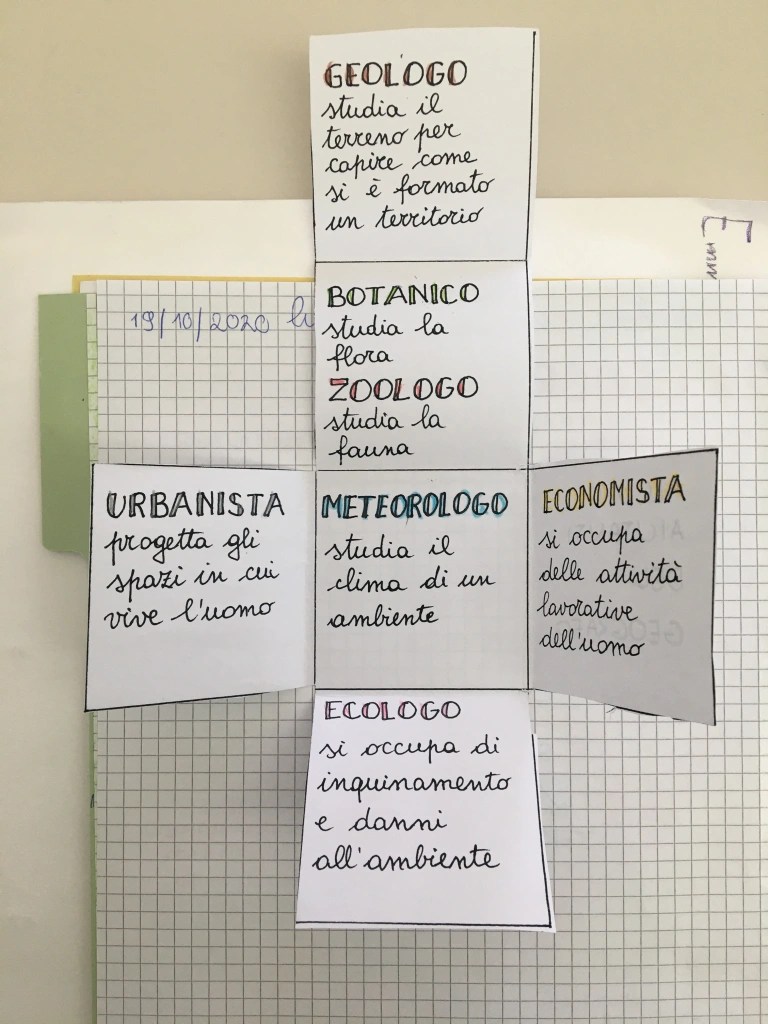 GEOLOGO
studia il
terreno per
capire come
si è formato
un territorio
19/10/2020
BOTANICO
studia la
flora
ZOOLOGO
studia la
fauna
URBANISTA
progetta gli
spazi in cui
vive l'uomo
METEOROLOGO
studia il
clima di un
ambiente
ECONOMISTA
si occupa
delle attività
lavorative
dell'uomo
ECOLOGO
si occupa di
inquinamento
e danni
all'ambiente